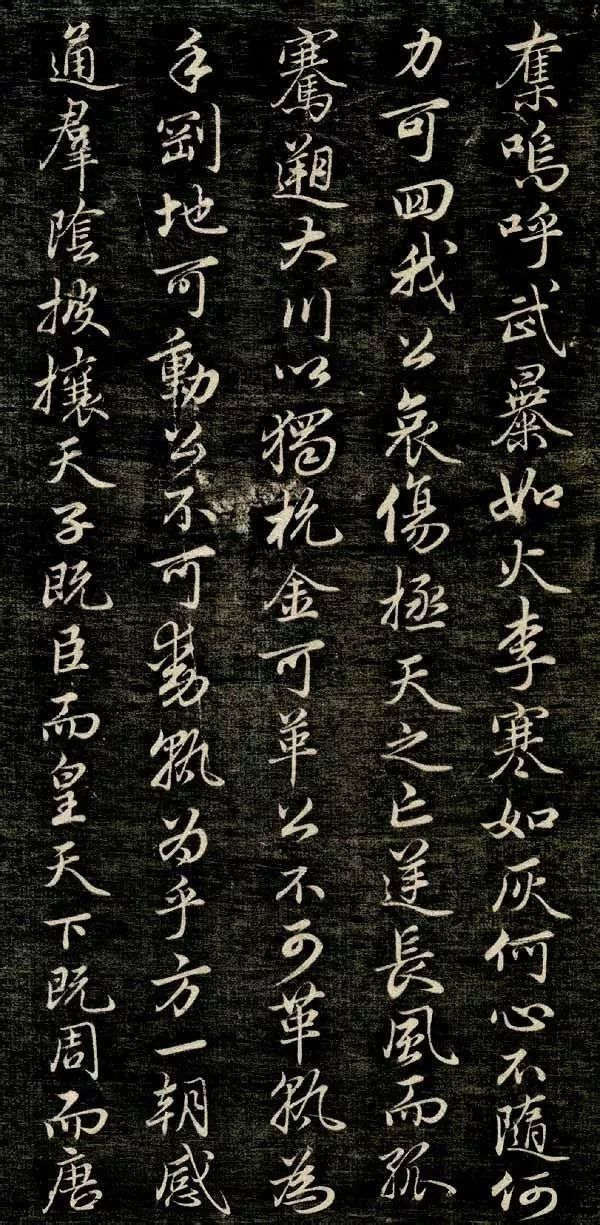 奪嗚呼武暴如火李寒如灰何心不隨何
力可回我公哀傷拯天之亡逆長風而孤
騫遡大川以獨杭金可革公不可革孰為
乎剛地可動公不可動孰為乎方一朝感
通羣陰披攘天子既臣而皇天下既周而唐